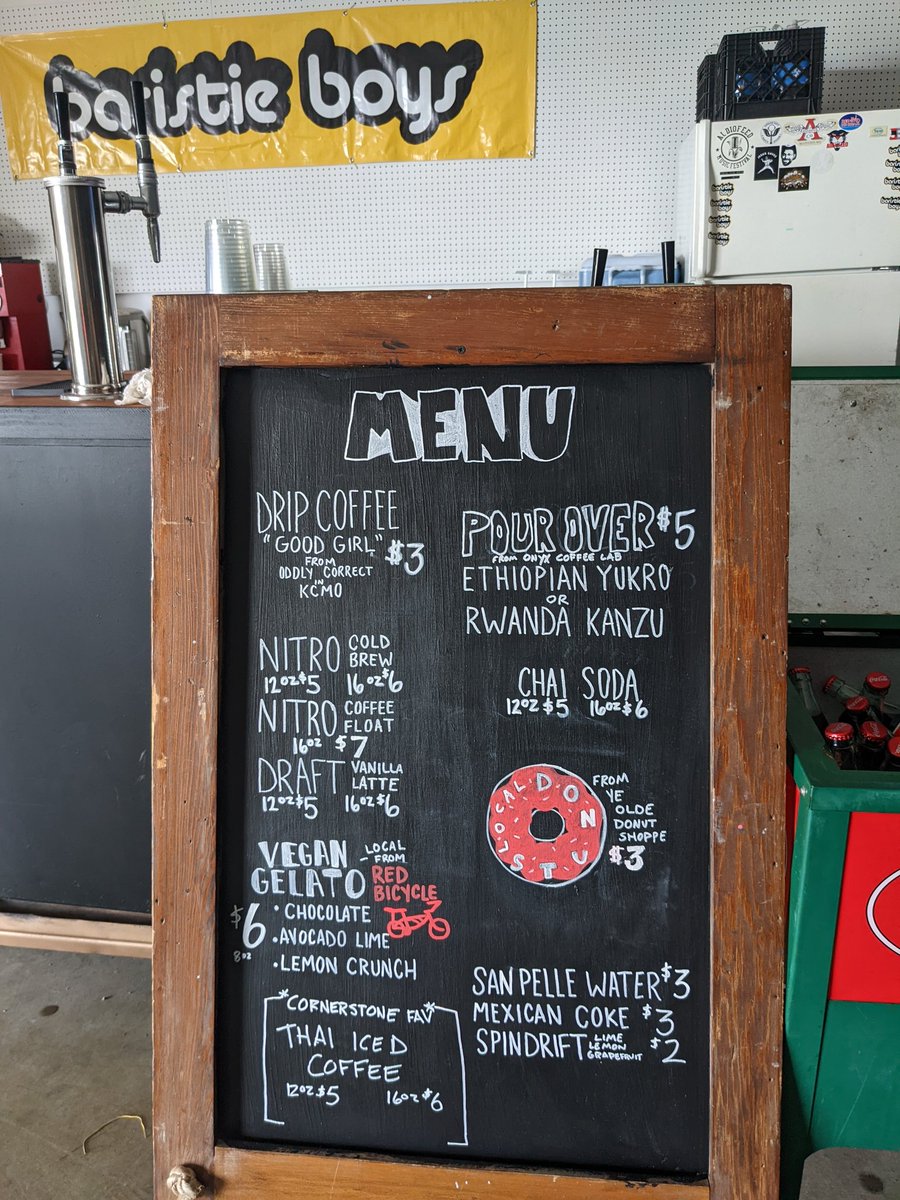 baristie boys
ALDIOFECO
MUSIC FESTIVAL
baristie
boys
MENU
DRIP COFFEE
"GOOD GIRL"
FROM
ODDLY CORRECT
IN
KCMO
$3
POUR OVER $5
FROM ONYX COFFEE LAB
ETHIOPIAN YUKRO
OR
RWANDA KANZU
NITRO COLD BREW
12oz $5 16oz $6
NITRO COFFEE FLOAT
16oz $7
DRAFT VANILLA LATTE
12oz $5 16oz $6
CHAI SODA
12oz $5 16oz $6
LOCAL DONUTS
FROM
YE
OLDE
DONUT
SHOPPE
$3
VEGAN
GELATO
LOCAL
FROM
RED
BICYCLE
$6
8oz
• CHOCOLATE
• AVOCADO LIME
• LEMON CRUNCH
*CORNERSTONE FAV*
THAI ICED
COFFEE
12oz $5 16oz $6
SAN PELLE WATER $3
MEXICAN COKE $3
SPINDRIFT LIME LEMON GRAPEFRUIT $2